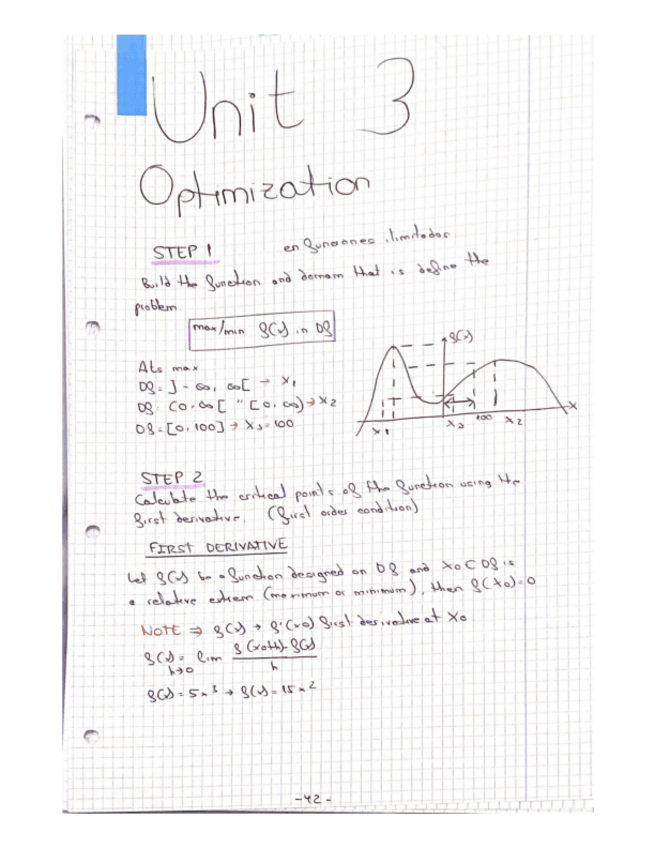 Unit 3
Optimization
STEP 1 en funciones ilimitadas
Build the function and domain that is define the
problem.
max/min f(x) in Df
f(x)
Abs max
Df = ]-∞, ∞[ → x1
Df: [0, ∞[ " [0, ∞) → x2
Df = [0, 100] → x3 = 100
x1 x3 100 x2 x
STEP 2
Calculate the critical points of the function using the
first derivative. (first order condition)
FIRST DERIVATIVE
Let f(x) be a function designed on Df and x0 ⊂ Df is
a relative extrem (maximum or minimum), then f(x0)=0
NOTE ⇒ f(x) → f'(x0) first derivative at x0
f(x) = lim h→0 f(x0+h)-f(x) / h
f(x) = 5x^3 → f(x) = 15x^2
-42-